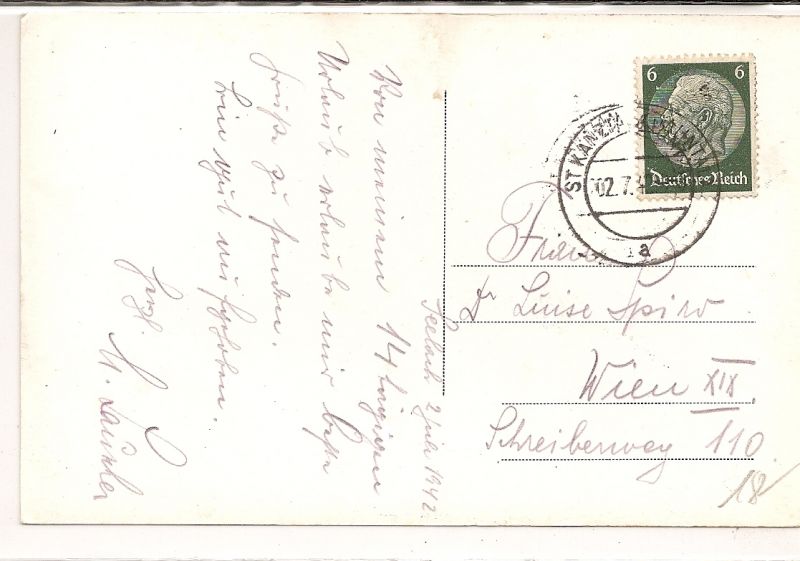 Seelach 2 Juli 1942.
Von meinem 14 tägigen
Urlaub erlaube mir beste
Grüße zu senden.
Bin gut aufgehoben.
Herzl.
6 6
Deutsches Reich
ST KANZIAN
02.7.
a
Frau
Dr Luise Spiro
Wien XIX
Schreiberweg 110
18